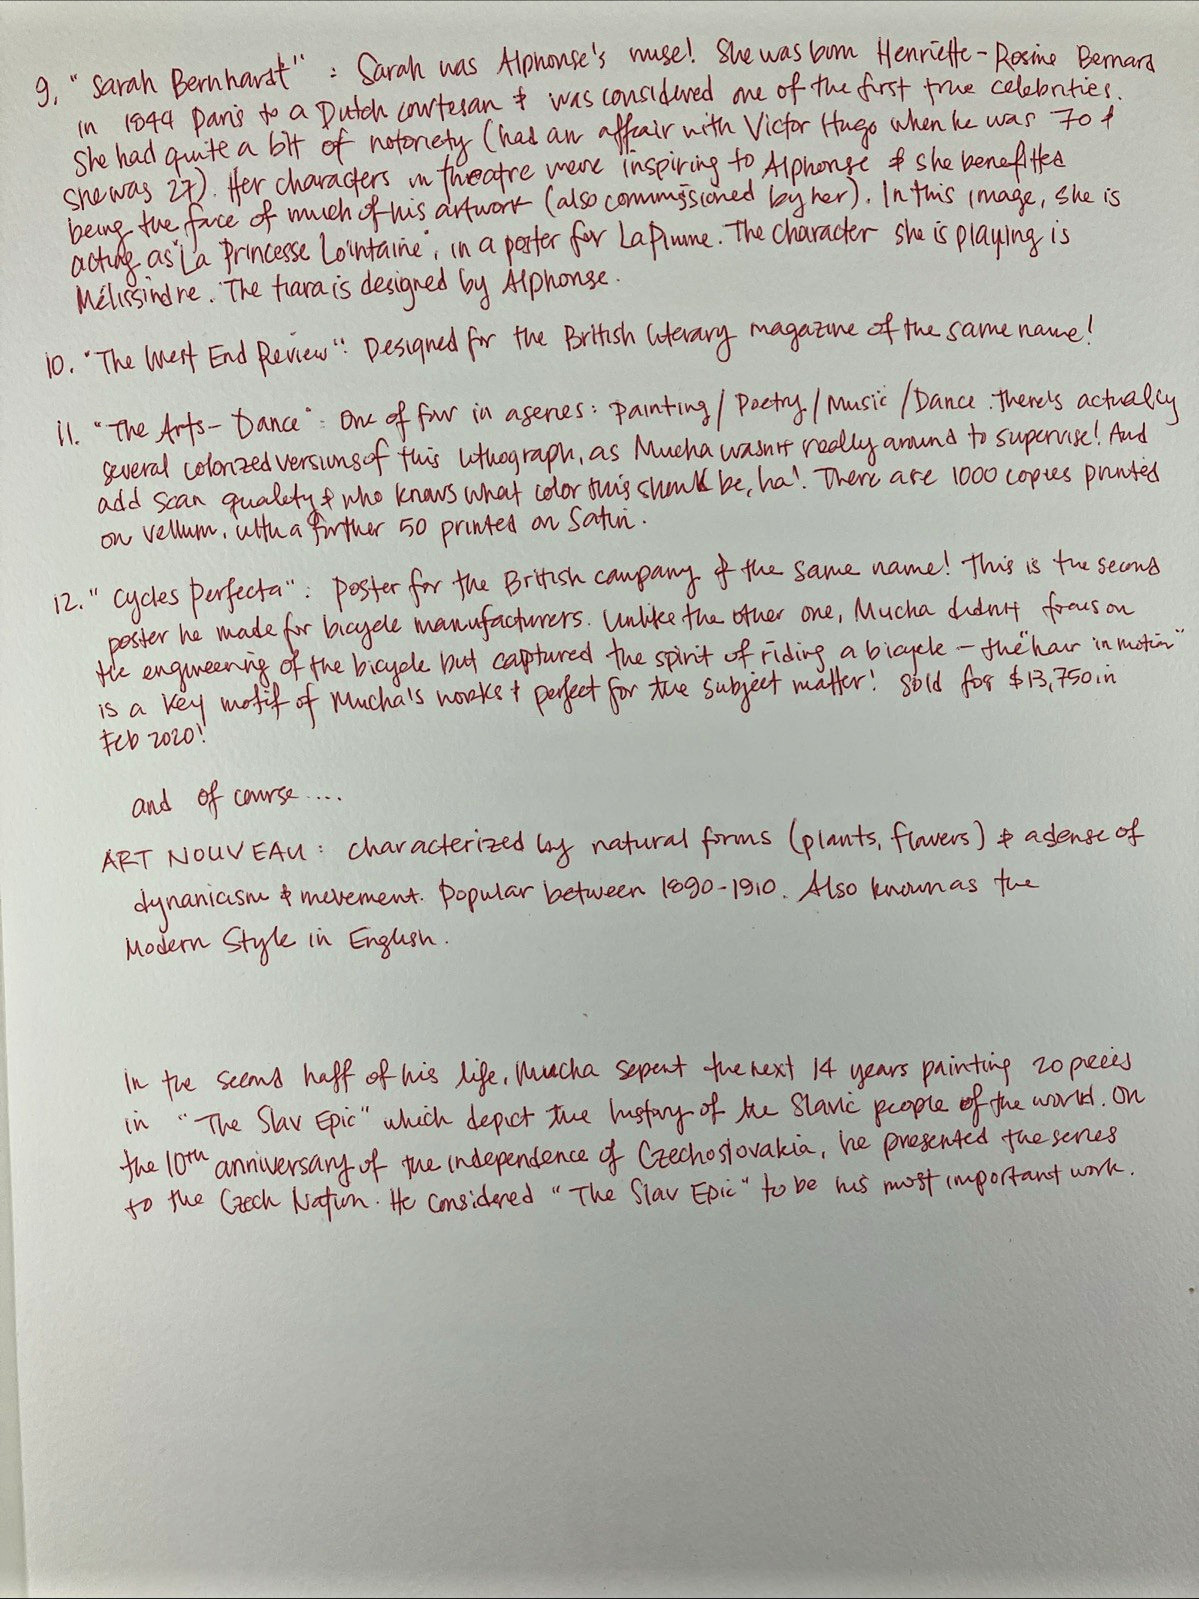 9. "Sarah Bernhardt" : Sarah was Alphonse's muse! She was born Henriette-Rosine Bernard
in 1844 Paris to a Dutch courtesan & was considered one of the first true celebrities.
She had quite a bit of notoriety (had an affair with Victor Hugo when he was 70 &
she was 27). Her characters in theatre were inspiring to Alphonse & she benefitted
being the face of much of his artwork (also commissioned by her). In this image, she is
acting as "La Princesse Lointaine", in a poster for La Plume. The character she is playing is
Mélissindre. The tiara is designed by Alphonse.
10. "The West End Review": Designed for the British literary magazine of the same name!
11. "The Arts - Dance": One of four in a series: Painting/Poetry/Music/Dance. There's actually
several colorized versions of this lithograph, as Mucha wasn't really around to supervise! And
add scan quality & who knows what color this should be, ha! There are 1000 copies printed
on vellum, with a further 50 printed on Satin.
12. "Cycles Perfecta": Poster for the British company of the same name! This is the second
poster he made for bicycle manufacturers. Unlike the other one, Mucha didn't focus on
the engineering of the bicycle but captured the spirit of riding a bicycle - the "hair in motion"
is a key motif of Mucha's works & perfect for the subject matter! Sold for $13,750 in
Feb 2020!
and of course ....
ART NOUVEAU: characterized by natural forms (plants, flowers) & a sense of
dynanicism & movement. Popular between 1890-1910. Also known as the
Modern Style in English.
In the second half of his life, Mucha sepent the next 14 years painting 20 pieces
in "The Slav Epic" which depict the history of the Slavic people of the world. On
the 10th anniversary of the independence of Czechoslovakia, he presented the series
to the Czech Nation. He considered "The Slav Epic" to be his most important work.